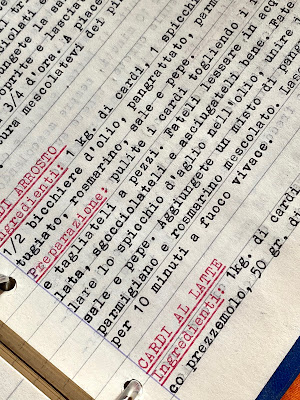 e lasciat
3/4 d'ora. A piace
ura mescolatori dei p
DI ARROSTO
Ingredienti: kg. di cardi, 1 spicchi
1/2 bicchiere d'olio, pangrattato, parm
tugiato, rosmarino, sale e pepe.
Preparazione: pulite i cardi togliendo i
e tagliateli a pezzi. Fateli lessare in acq
lata, sgocciolateli e asciugateli bene. Fate
lare lo spicchio d'aglio nell'olio, unire
sale e pepe. Aggiungete un misto di pan
parmigiano e rosmarino mescolato. La
per 10 minuti a fuoco vivace.
CARDI AL LATTE
Ingredienti: 1kg. di cardi
co prezzemolo, 50 gr. d